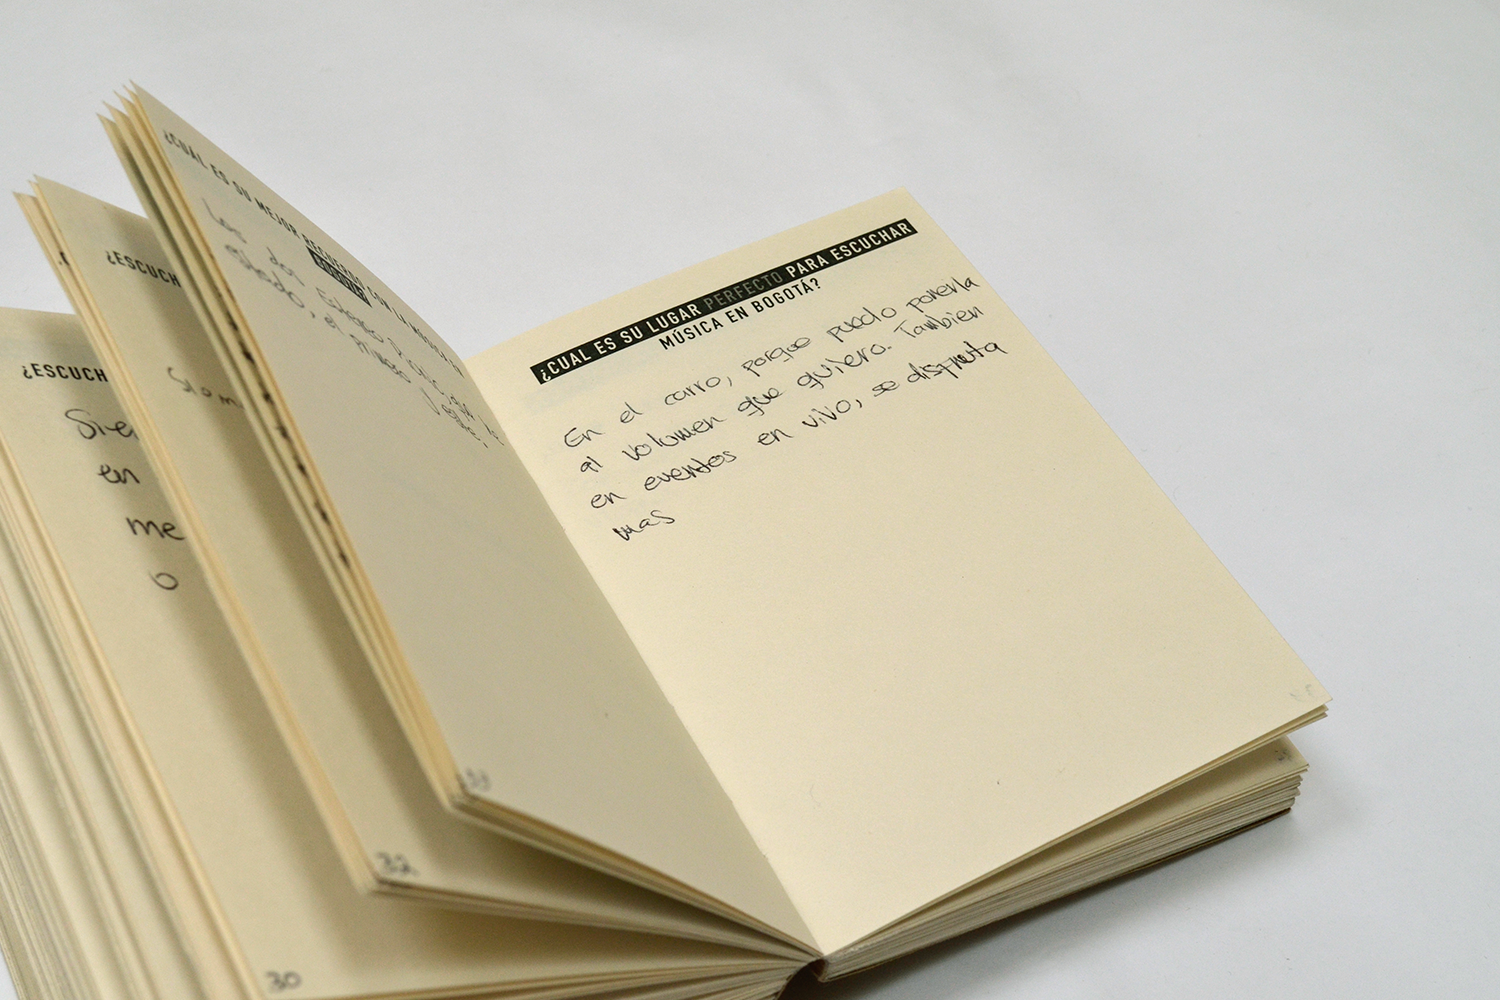 ¿ESCUCH
Si-en
en
me
o
30
¿ESCUCH
Si a m
32
¿CUAL ES SU MEJOR RECUERDO CON LA MÚSICA EN
BOGOTÁ?
Los dos Estereo Picnic, que he
el primero
¿CUAL ES SU LUGAR PERFECTO PARA ESCUCHAR
MÚSICA EN BOGOTÁ?
En el carro, porque puedo ponerla
al volumen que quiero. Tambien
en eventos en vivo, se disfruta
mas